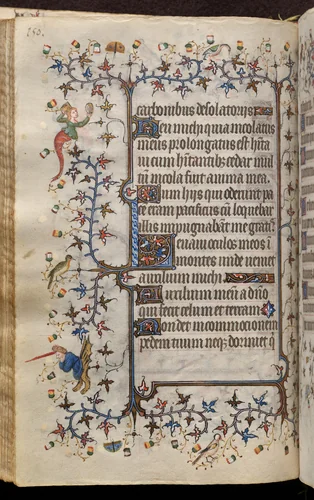 carbonibus desolatorijs
Heu mchi quia incolatus
meus prolongatus est hita
ui cum hitantibus cedar mul
tum incola fuit anima mea.
Cum hijs qui oderunt pa
cem eram pacificus cu loquebar
illis impugnabant me gratis.
Leuaui oculos meos i
montes unde veniet
auxilium michi
Auxilium meu a dno
qui fecit celum et terram
Non det in commocionem
pedem tuum neqz dormiet q